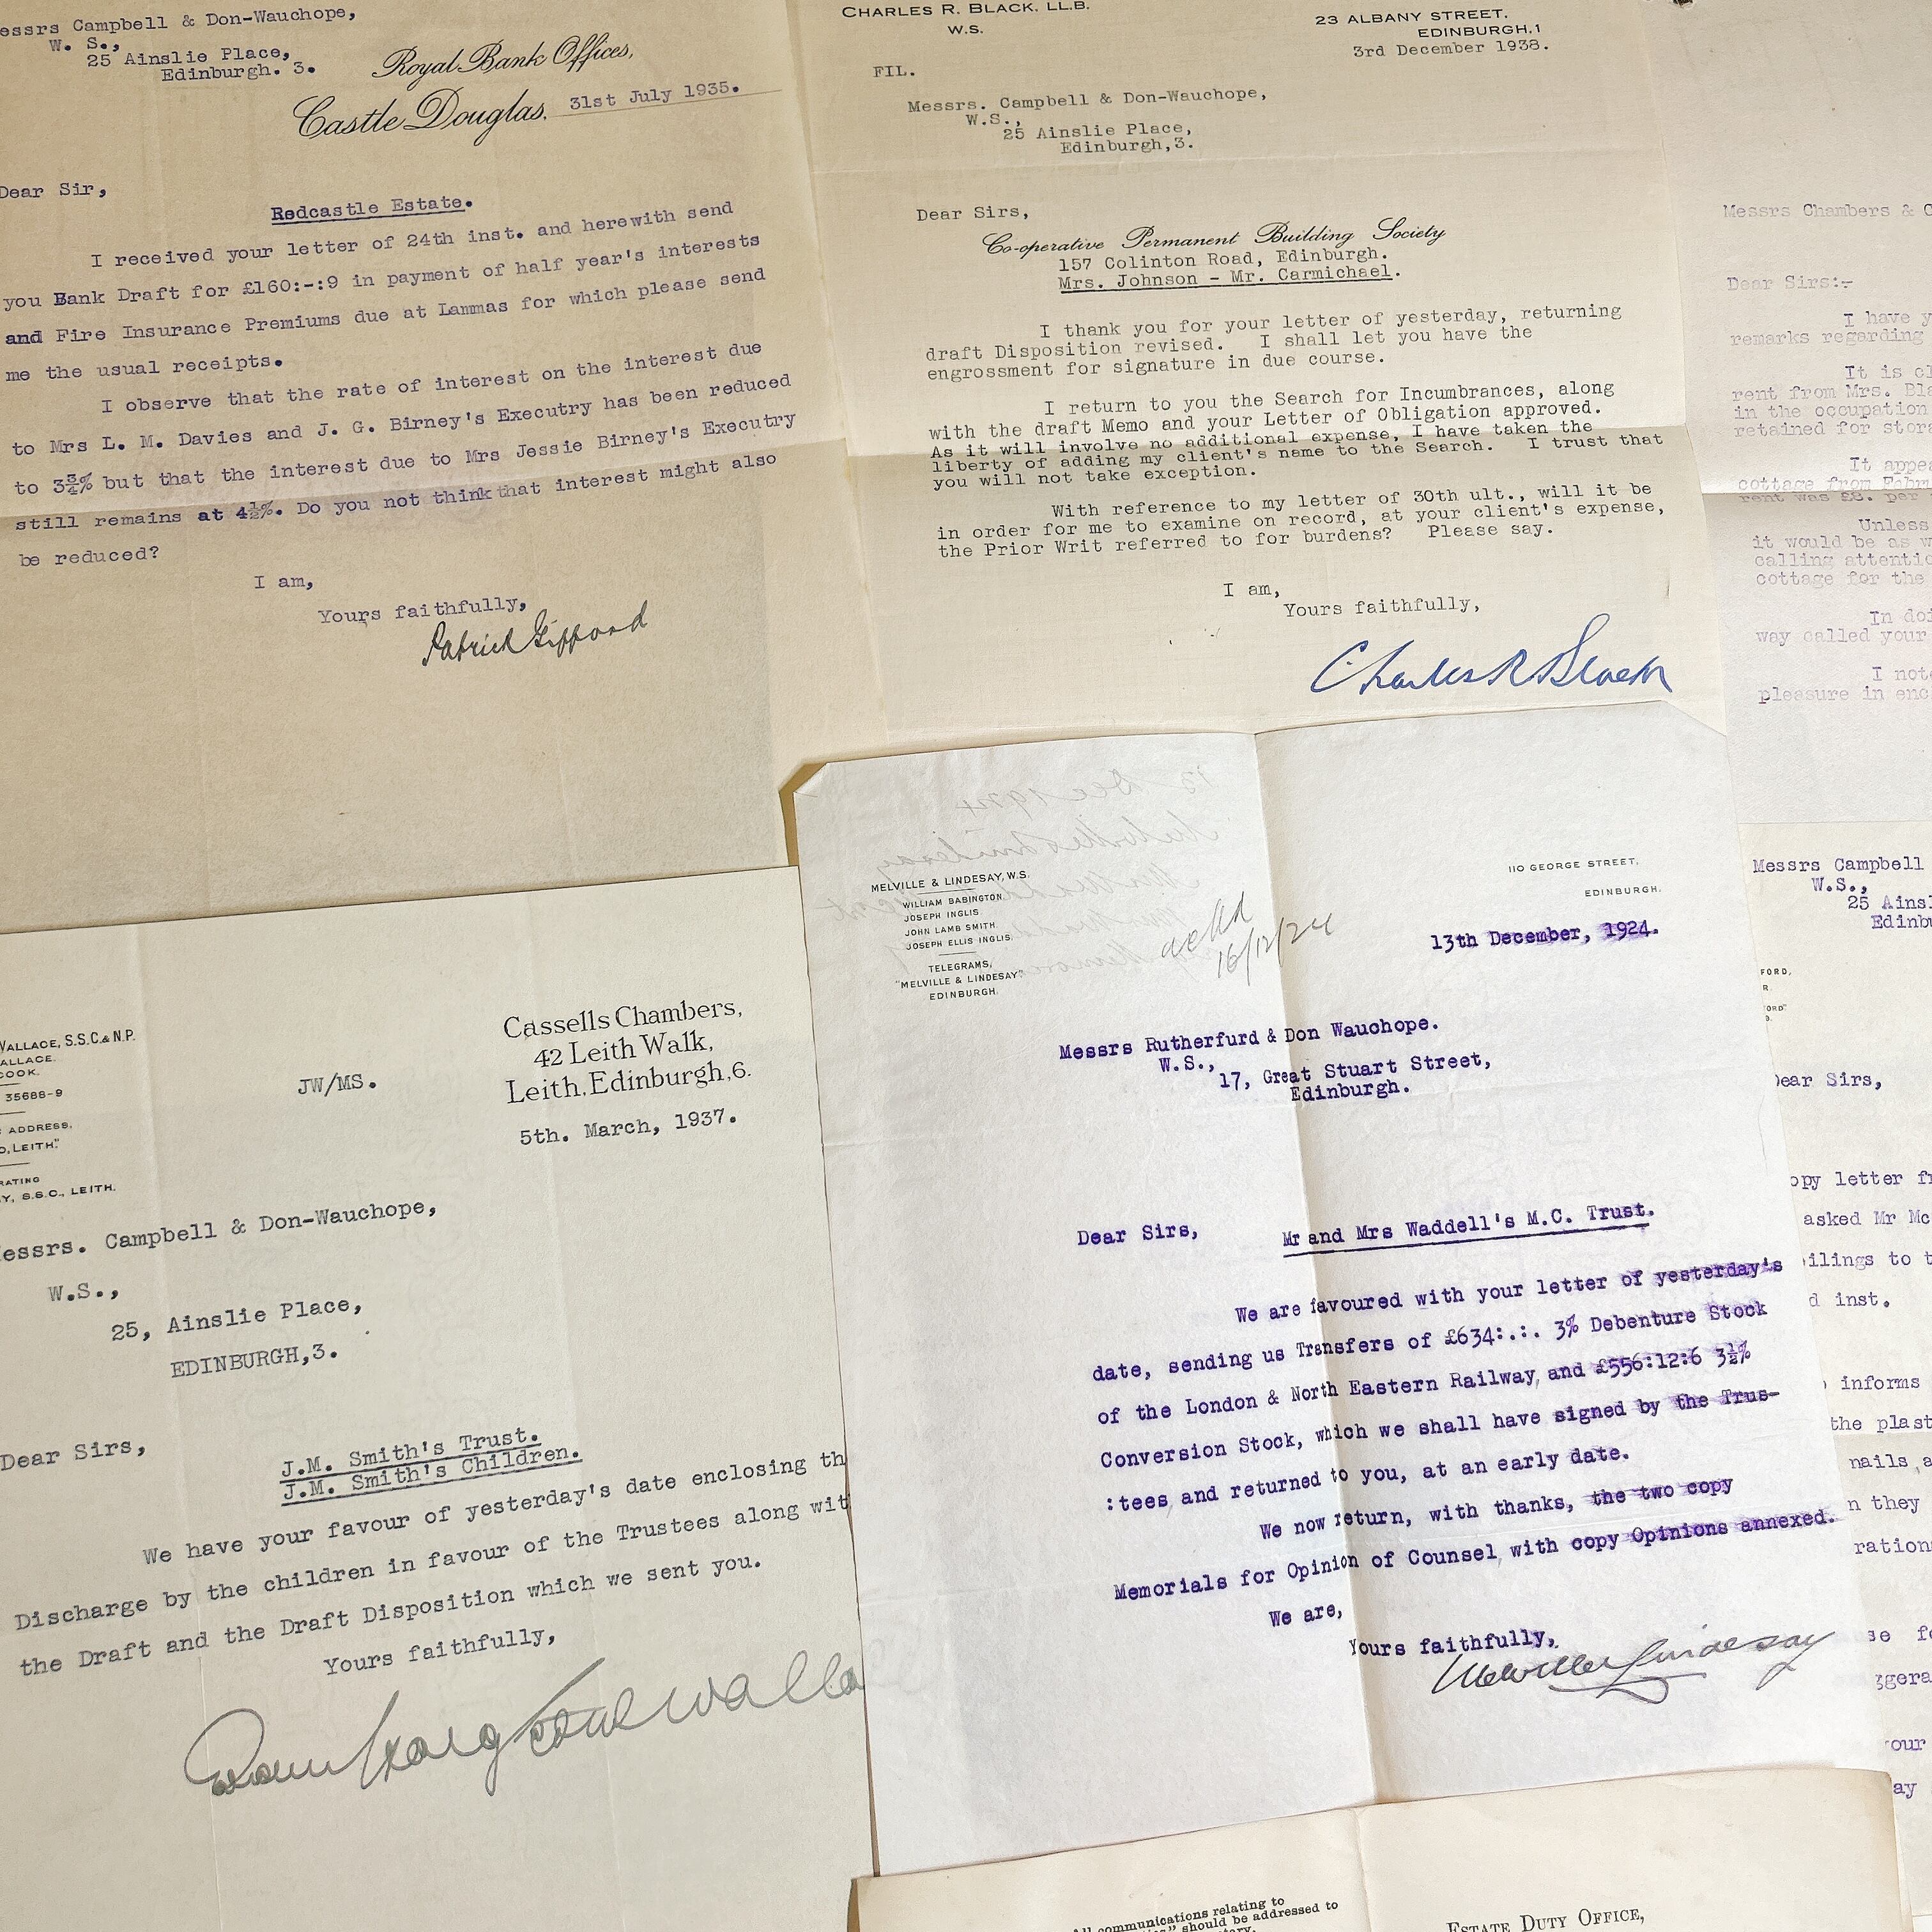 essrs Campbell & Don-Wauchope,
W. S.,
25 Ainslie Place,
Edinburgh. 3.
Royal Bank Offices,
Castle Douglas. 31st July 1935.
Dear Sir,
Redcastle Estate.
I received your letter of 24th inst. and herewith send
you Bank Draft for £160:-:9 in payment of half year's interests
and Fire Insurance Premiums due at Lammas for which please send
me the usual receipts.
I observe that the rate of interest on the interest due
to Mrs L. M. Davies and J. G. Birney's Executry has been reduced
to 3¾% but that the interest due to Mrs Jessie Birney's Executry
still remains at 4½%. Do you not think that interest might also
be reduced?
I am,
Yours faithfully,
Patrick Gifford
CHARLES R. BLACK. LL.B.
W.S.
23 ALBANY STREET,
EDINBURGH.1
3rd December 1938.
FIL.
Messrs. Campbell & Don-Wauchope,
W.S.,
25 Ainslie Place,
Edinburgh,3.
Dear Sirs,
Co-operative Permanent Building Society
157 Colinton Road, Edinburgh.
Mrs. Johnson - Mr. Carmichael.
I thank you for your letter of yesterday, returning
draft Disposition revised. I shall let you have the
engrossment for signature in due course.
I return to you the Search for Incumbrances, along
with the draft Memo and your Letter of Obligation approved.
As it will involve no additional expense, I have taken the
liberty of adding my client's name to the Search. I trust that
you will not take exception.
With reference to my letter of 30th ult., will it be
in order for me to examine on record, at your client's expense,
the Prior Writ referred to for burdens? Please say.
I am,
Yours faithfully,
Charles R Black
Messrs Chambers & C
Dear Sirs:-
I have y
remarks regarding
It is cl
rent from Mrs. Bla
in the occupation
retained for stora
It appea
cottage from Febru
rent was £8. per
Unless
it would be as w
calling attentio
cottage for the
In doi
way called your
I note
pleasure in enc
WALLACE, S.S.C.& N.P.
ALLACE.
COOK.
35688-9
ADDRESS.
O, LEITH."
RATING
Y, S.S.C., LEITH.
JW/MS.
Cassells Chambers,
42 Leith Walk,
Leith, Edinburgh,6.
5th. March, 1937.
essrs. Campbell & Don-Wauchope,
W.S.,
25, Ainslie Place,
EDINBURGH,3.
Dear Sirs,
J.M. Smith's Trust.
J.M. Smith's Children.
We have your favour of yesterday's date enclosing th
Discharge by the children in favour of the Trustees along wit
the Draft and the Draft Disposition which we sent you.
Yours faithfully,
MELVILLE & LINDESAY, W.S.
WILLIAM BABINGTON.
JOSEPH INGLIS.
JOHN LAMB SMITH.
JOSEPH ELLIS INGLIS.
TELEGRAMS,
"MELVILLE & LINDESAY"
EDINBURGH.
16/12/24
110 GEORGE STREET,
EDINBURGH.
13th December, 1924.
Messrs Rutherfurd & Don Wauchope.
W.S.,
17, Great Stuart Street,
Edinburgh.
Dear Sirs,
Mr and Mrs Waddell's M.C. Trust.
We are favoured with your letter of yesterday's
date, sending us Transfers of £634:.:. 3% Debenture Stock
of the London & North Eastern Railway, and £556:12:6 3½%
Conversion Stock, which we shall have signed by the Trus-
:tees and returned to you, at an early date.
We now return, with thanks, the two copy
Memorials for Opinion of Counsel with copy Opinions annexed.
We are,
Yours faithfully,
Melville Lindesay
Messrs Campbell
W.S.,
25 Ainsl
Edinbu
FORD,
R.
FORD"
Dear Sirs,
opy letter fr
asked Mr Mc
ilings to t
d inst.
informs
the plast
nails a
n they
ration
se fo
ggera
our
ay
All communications relating to
should be addressed to
ESTATE DUTY OFFICE,